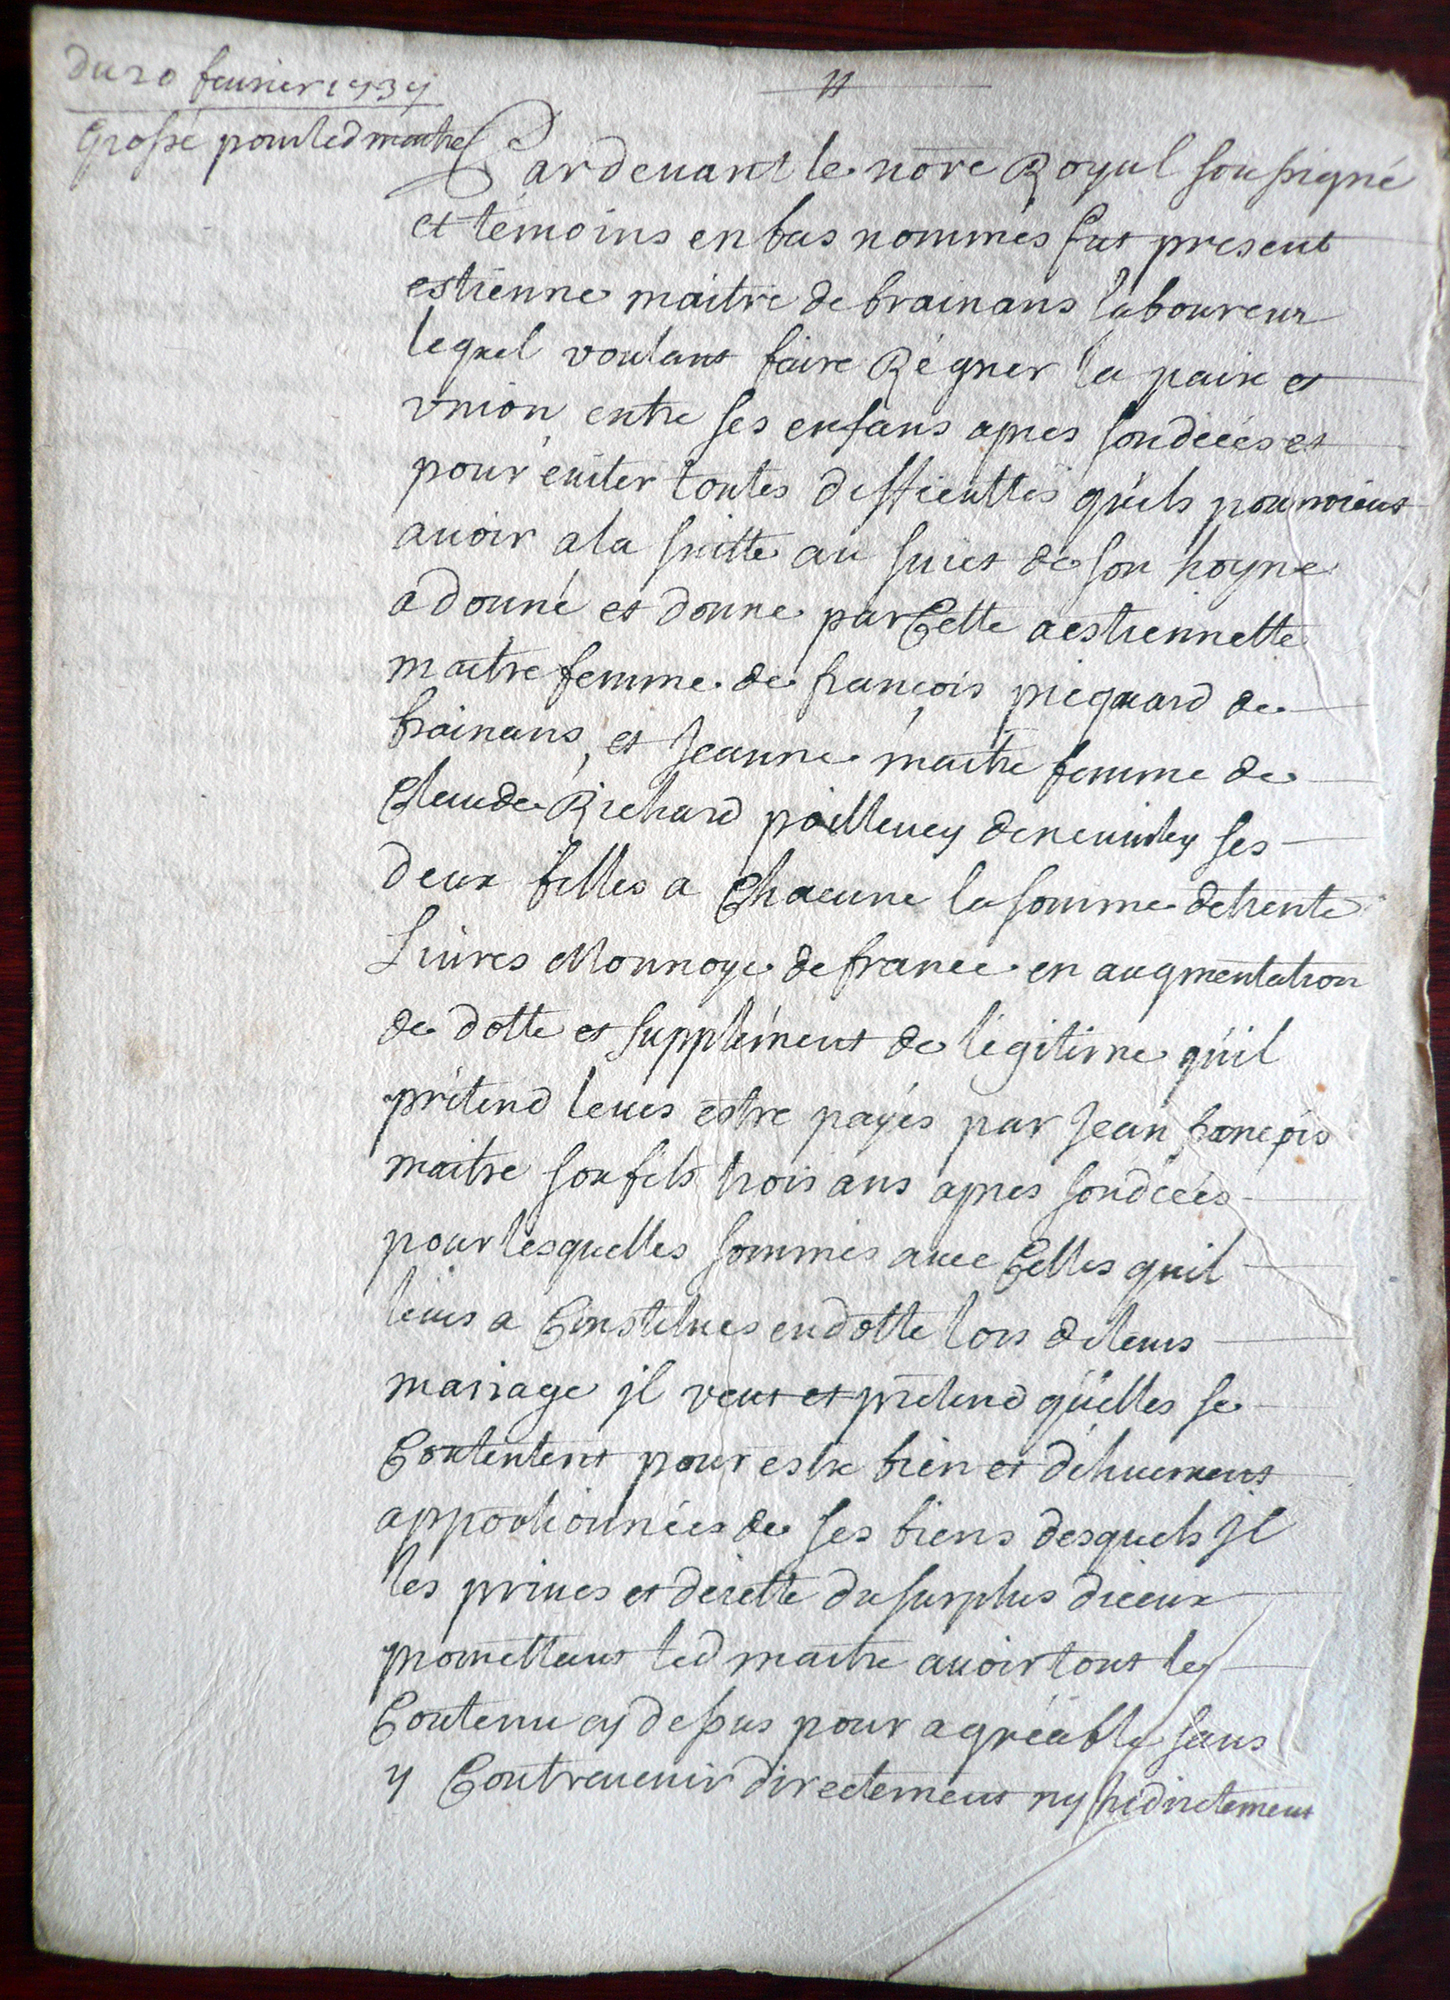 du 20 feurier 1737
Grossé pour led maitre
Pardeuant le nore Royal soussigné
et témoins en bas nommés fut present
estienne maitre de brainans laboureur
lequel voulant faire Régner la paix et
vnion entre ses enfans apres son décés et
pour éuiter toutes difficultés qu'ils pourroient
auoir a la suitte au suiet de son hoyrie
a donné et donne par Cette a estiennette
maitre femme de francois picquard de
brainans, et Jeanne maitre femme de
Claude Richard poilleuey de neuuiley ses
deux filles a Chacune la somme de trente
Liures Monnoye de france en augmentation
de dotte et supplément de légitime qu'il
prétend leurs estre payés par Jean francois
maitre son fils trois ans apres son décés
pour lesquelles sommes auec Celles quil
leurs a Constitués en dotte lors de leurs
mariage jl veut et prétend qu'elles se
Contentent pour estre bien et dehuement
apportionnées de ses biens desquels jl
les priues et deiette du surplus diceux
promettant led maitre auoir tout le
Contenu cy dessus pour agréable sans
y Contreuenir directement ny Indirectement